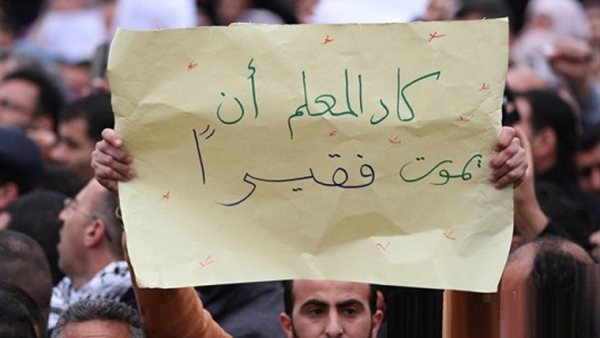 كاد المعلم أن
يموت فقيرًا